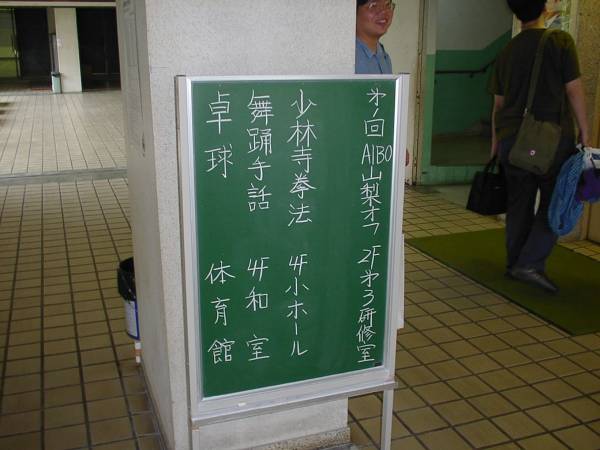 オ1回 AIBO山梨オフ 2F オ3研修室
少林寺拳法 4F小ホール
舞踊手話 4F和室
卓球 体育館